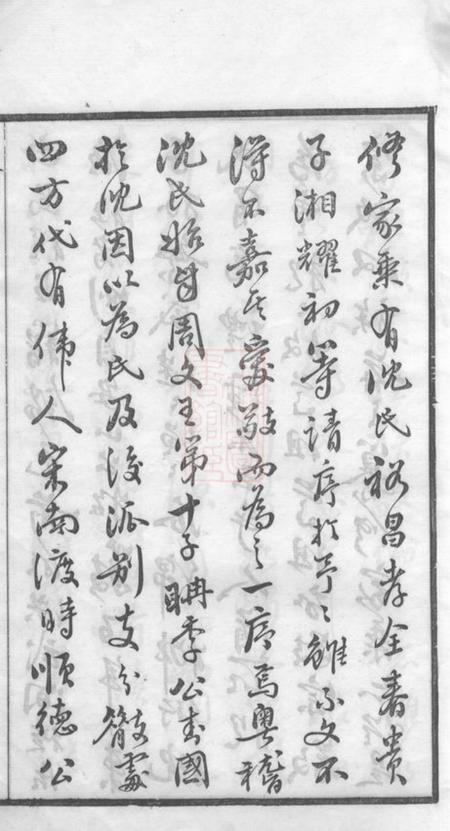 修家乘有沈氏裕昌孝全春贵
子湘耀初等請序於予〻雖不文不
得不嘉其愛敬而為之一序焉粵稽
沈氏始自周文王第十子聃季公封國
於沈因以為氏及後派別支分散處
四方代有偉人宋南渡時順德公